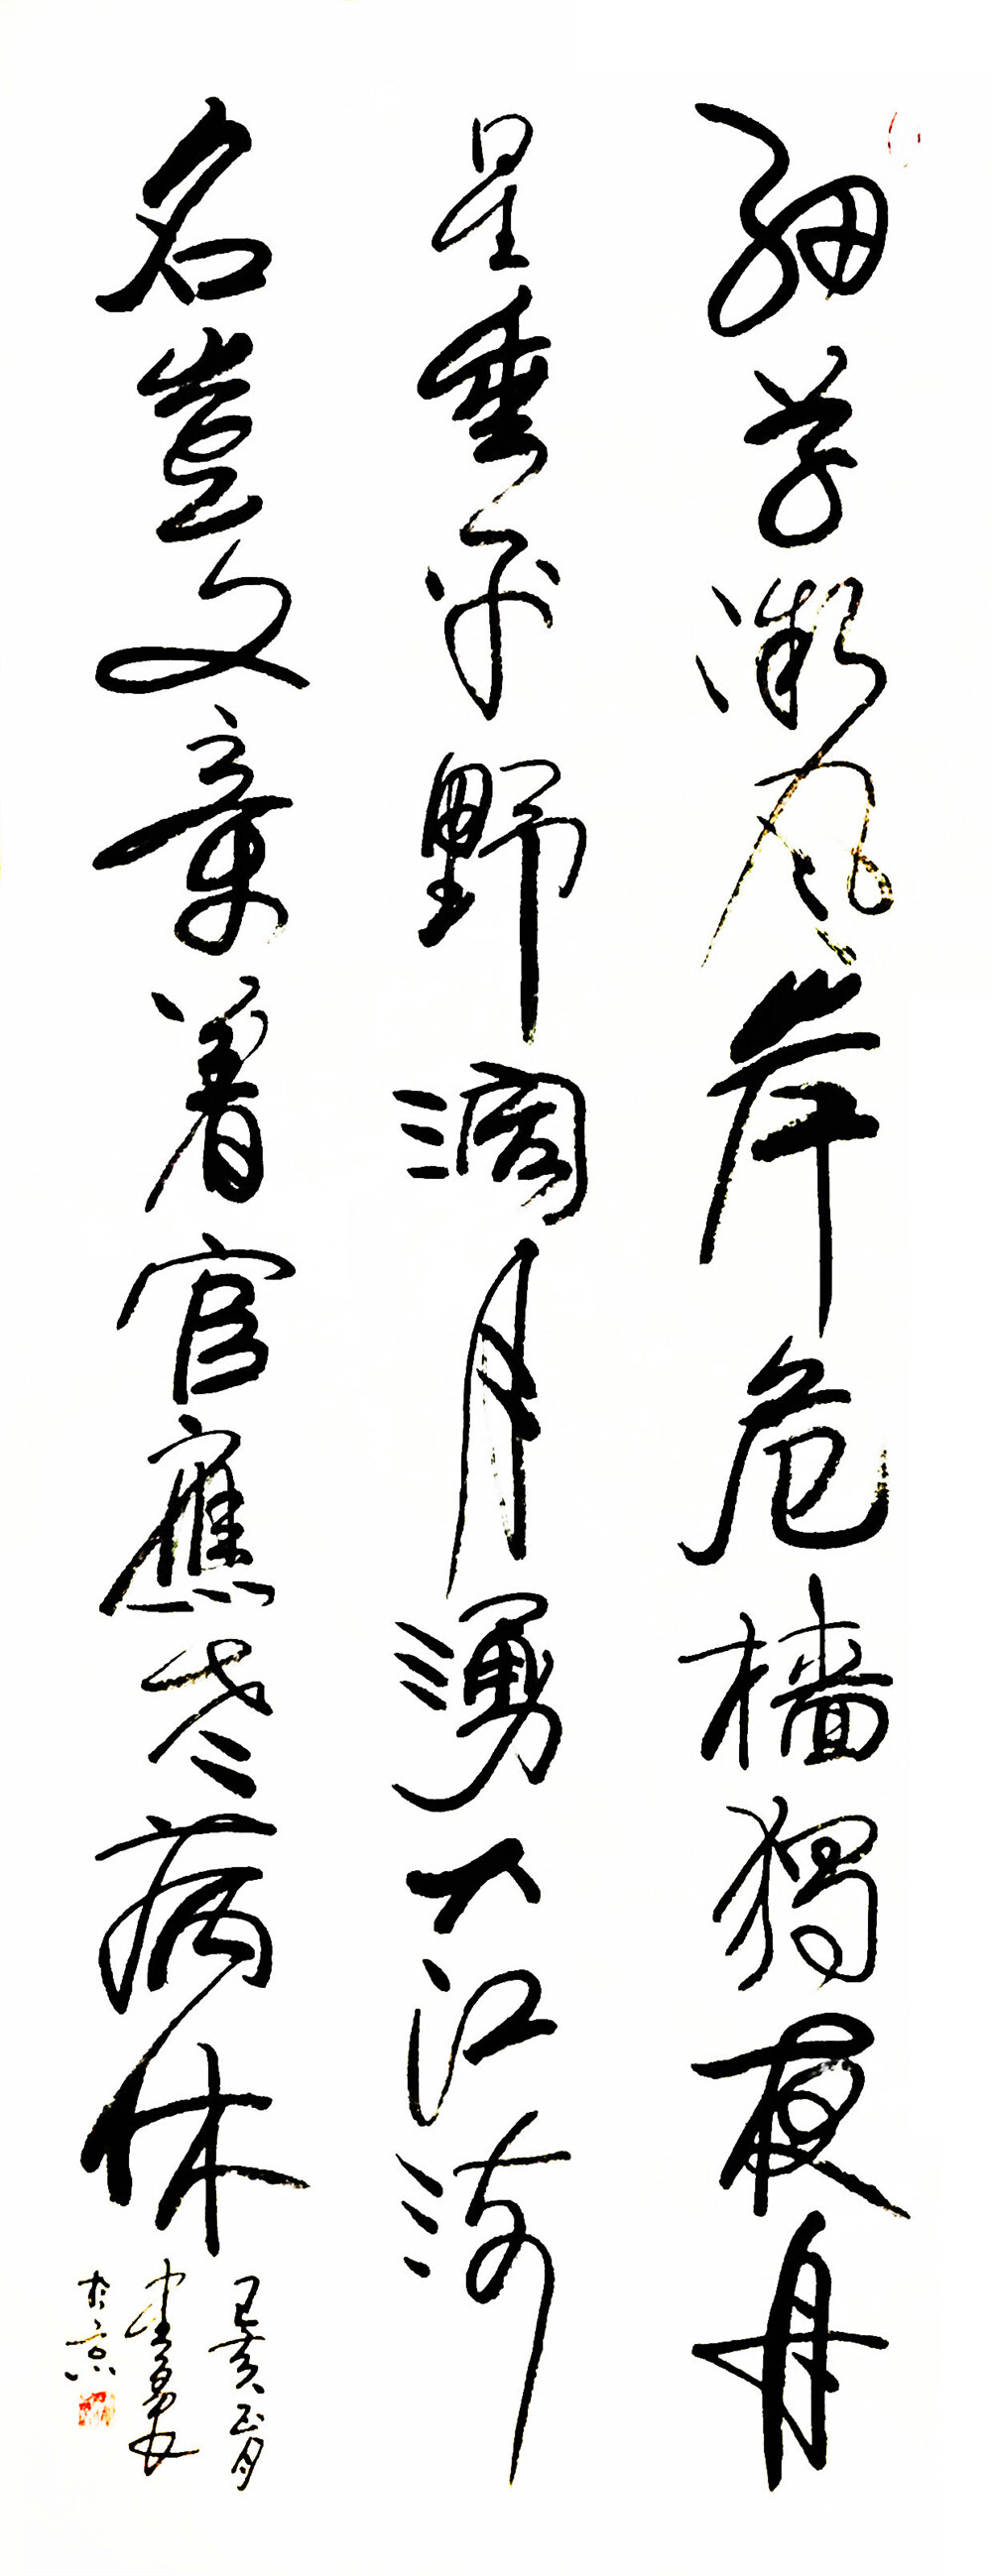 細草微风岸危檣獨夜舟
星垂平野濶月湧大江流
名豈文章著官應老病休
己亥正月
於京